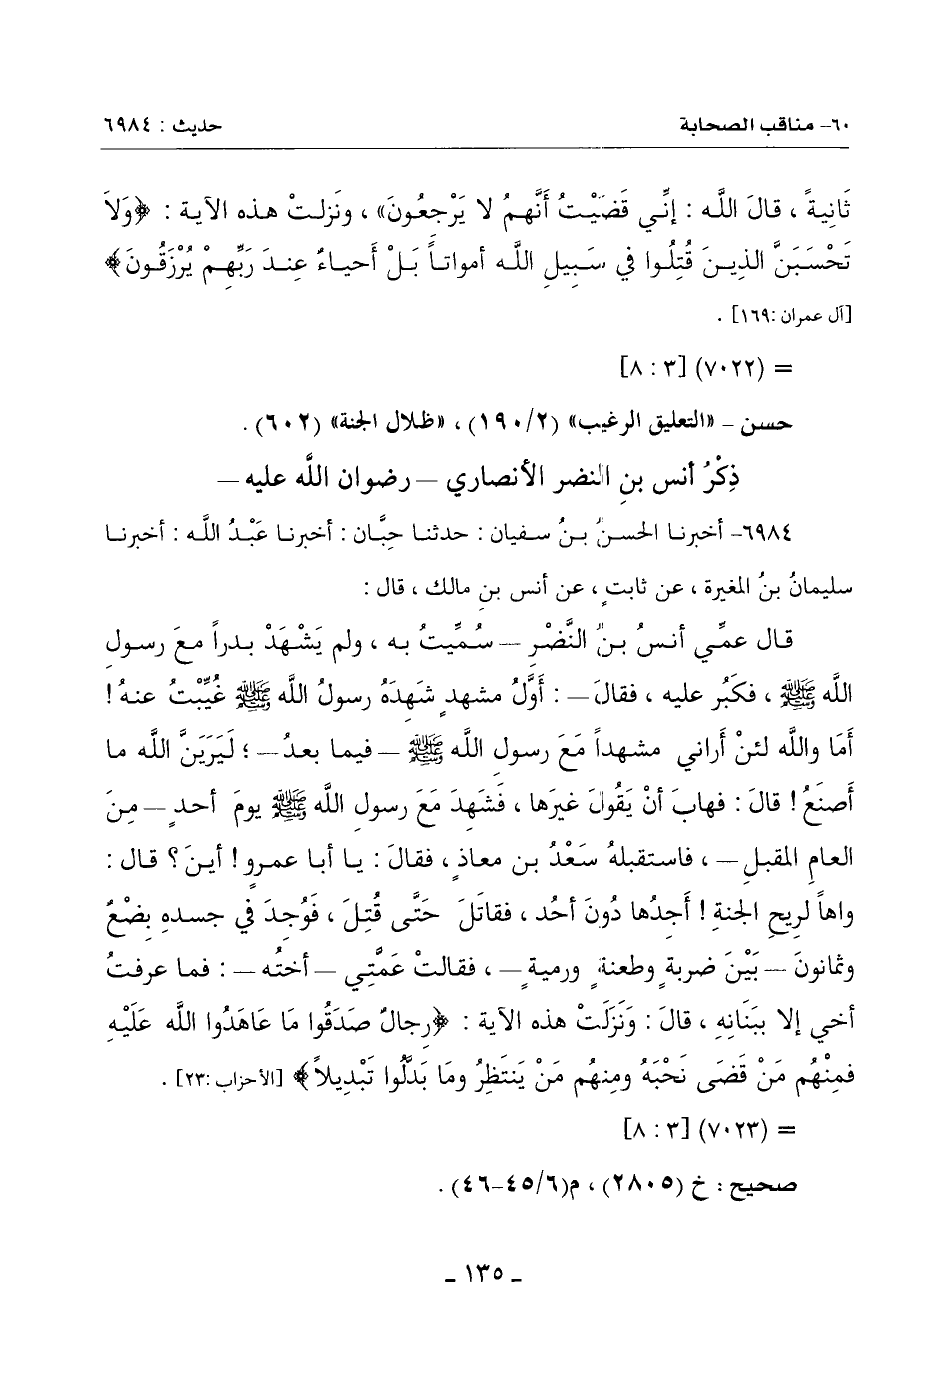 ٦٠- مناقب الصحابة حديث : ٦٩٨٤
ثَانِيةً ، قالَ اللَّه : إنِّي قَضَيْتُ أَنَّهمُ لا يَرْجعُونَ» ، ونَزلتْ هذه الآية : ﴿وَلاَ
تَحْسَبَنَّ الذِينَ قُتِلُوا في سَبِيلِ اللَّه أمواتاً بَلْ أَحياءٌ عِندَ رَبِّهمْ يُرْزَقُونَ﴾
[آل عمران :١٦٩] .
= (٧٠٢٢) [٣ : ٨]
حسن – «التعليق الرغيب» (١٩٠/٢) ، «ظلال الجنة» (٦٠٢) .
ذِكْرُ أنس بنِ النضر الأنصاري – رضوان اللَّه عليه –
٦٩٨٤- أخبرنا الحسنُ بنُ سفيان : حدثنا حِبَّان : أخبرنا عَبْدُ اللَّه : أخبرنا
سليمانُ بنُ المغيرة ، عن ثابتٍ ، عن أنس بنِ مالك ، قال :
قال عمِّي أنسُ بنُ النَّضْرِ – سُمِّيتُ به ، ولم يَشْهَدْ بدراً معَ رسولِ
اللَّه ﷺ ، فكَبُر عليه ، فقالَ – : أوَّلُ مشهدٍ شهِدَهُ رسولُ اللَّه ﷺ غُيِّبْتُ عنهُ !
أمَا واللَّه لئنْ أراني مشهداً مَعَ رسولِ اللَّه ﷺ – فيما بعدُ – ؛ لَيَرَيَنَّ اللَّه ما
أصنَعُ ! قالَ : فهابَ أنْ يَقُولَ غيرَها ، فَشَهِدَ مَعَ رسولِ اللَّه ﷺ يومَ أحدٍ – مِنَ
العامِ المقبلِ – ، فاستقبلهُ سَعْدُ بن معاذٍ ، فقالَ : يا أبا عمرٍو ! أينَ ؟ قال :
واهاً لريحِ الجنةِ ! أجِدُها دُونَ أحُد ، فقاتَلَ حَتَّى قُتِلَ ، فَوُجدَ في جسدهِ بِضْعٌ
وثمانونَ – بَيْنَ ضربةٍ وطعنةٍ ورميةٍ – ، فقالتْ عَمَّتِي – أختُه – : فما عرفتُ
أخي إلا ببَنَانِهِ ، قالَ : وَنَزَلَتْ هذه الآية : ﴿رِجالٌ صَدَقُوا مَا عَاهَدُوا اللَّه عَلَيْهِ
فمِنْهُم مَنْ قَضَى نَحْبَهُ ومِنهُم مَنْ يَنتَظِرُ ومَا بَدَّلُوا تَبْدِيلاً﴾ [الأحزاب :٢٣] .
= (٧٠٢٣) [٣ : ٨]
صحيح : خ (٢٨٠٥) ، م(٤٥/٦-٤٦) .
ـ ١٣٥ ـ